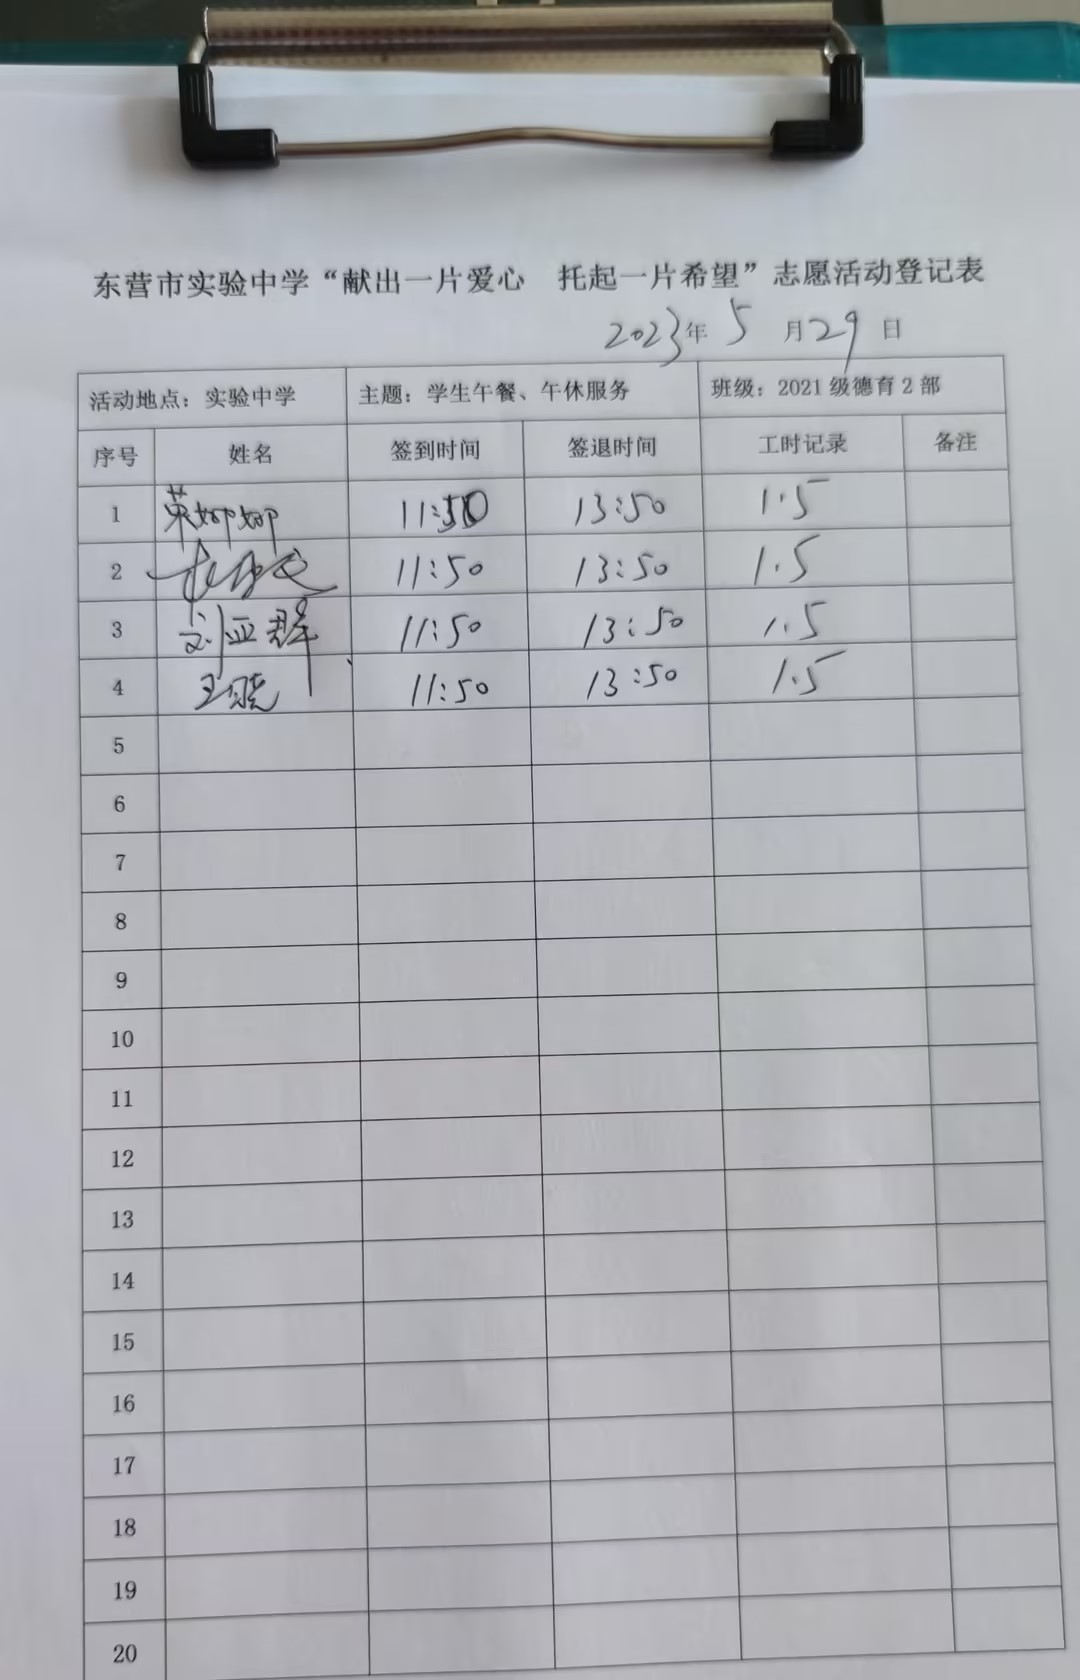 东营市实验中学“献出一片爱心 托起一片希望”志愿活动登记表
2023年 5 月 29 日
活动地点：实验中学 主题：学生午餐、午休服务 班级：2021级德育2部
序号 姓名 签到时间 签退时间 工时记录 备注
1 英娜娜 11:50 13:50 1.5
2 11:50 13:50 1.5
3 刘亚群 11:50 13:50 1.5
4 王晓 11:50 13:50 1.5
5
6
7
8
9
10
11
12
13
14
15
16
17
18
19
20